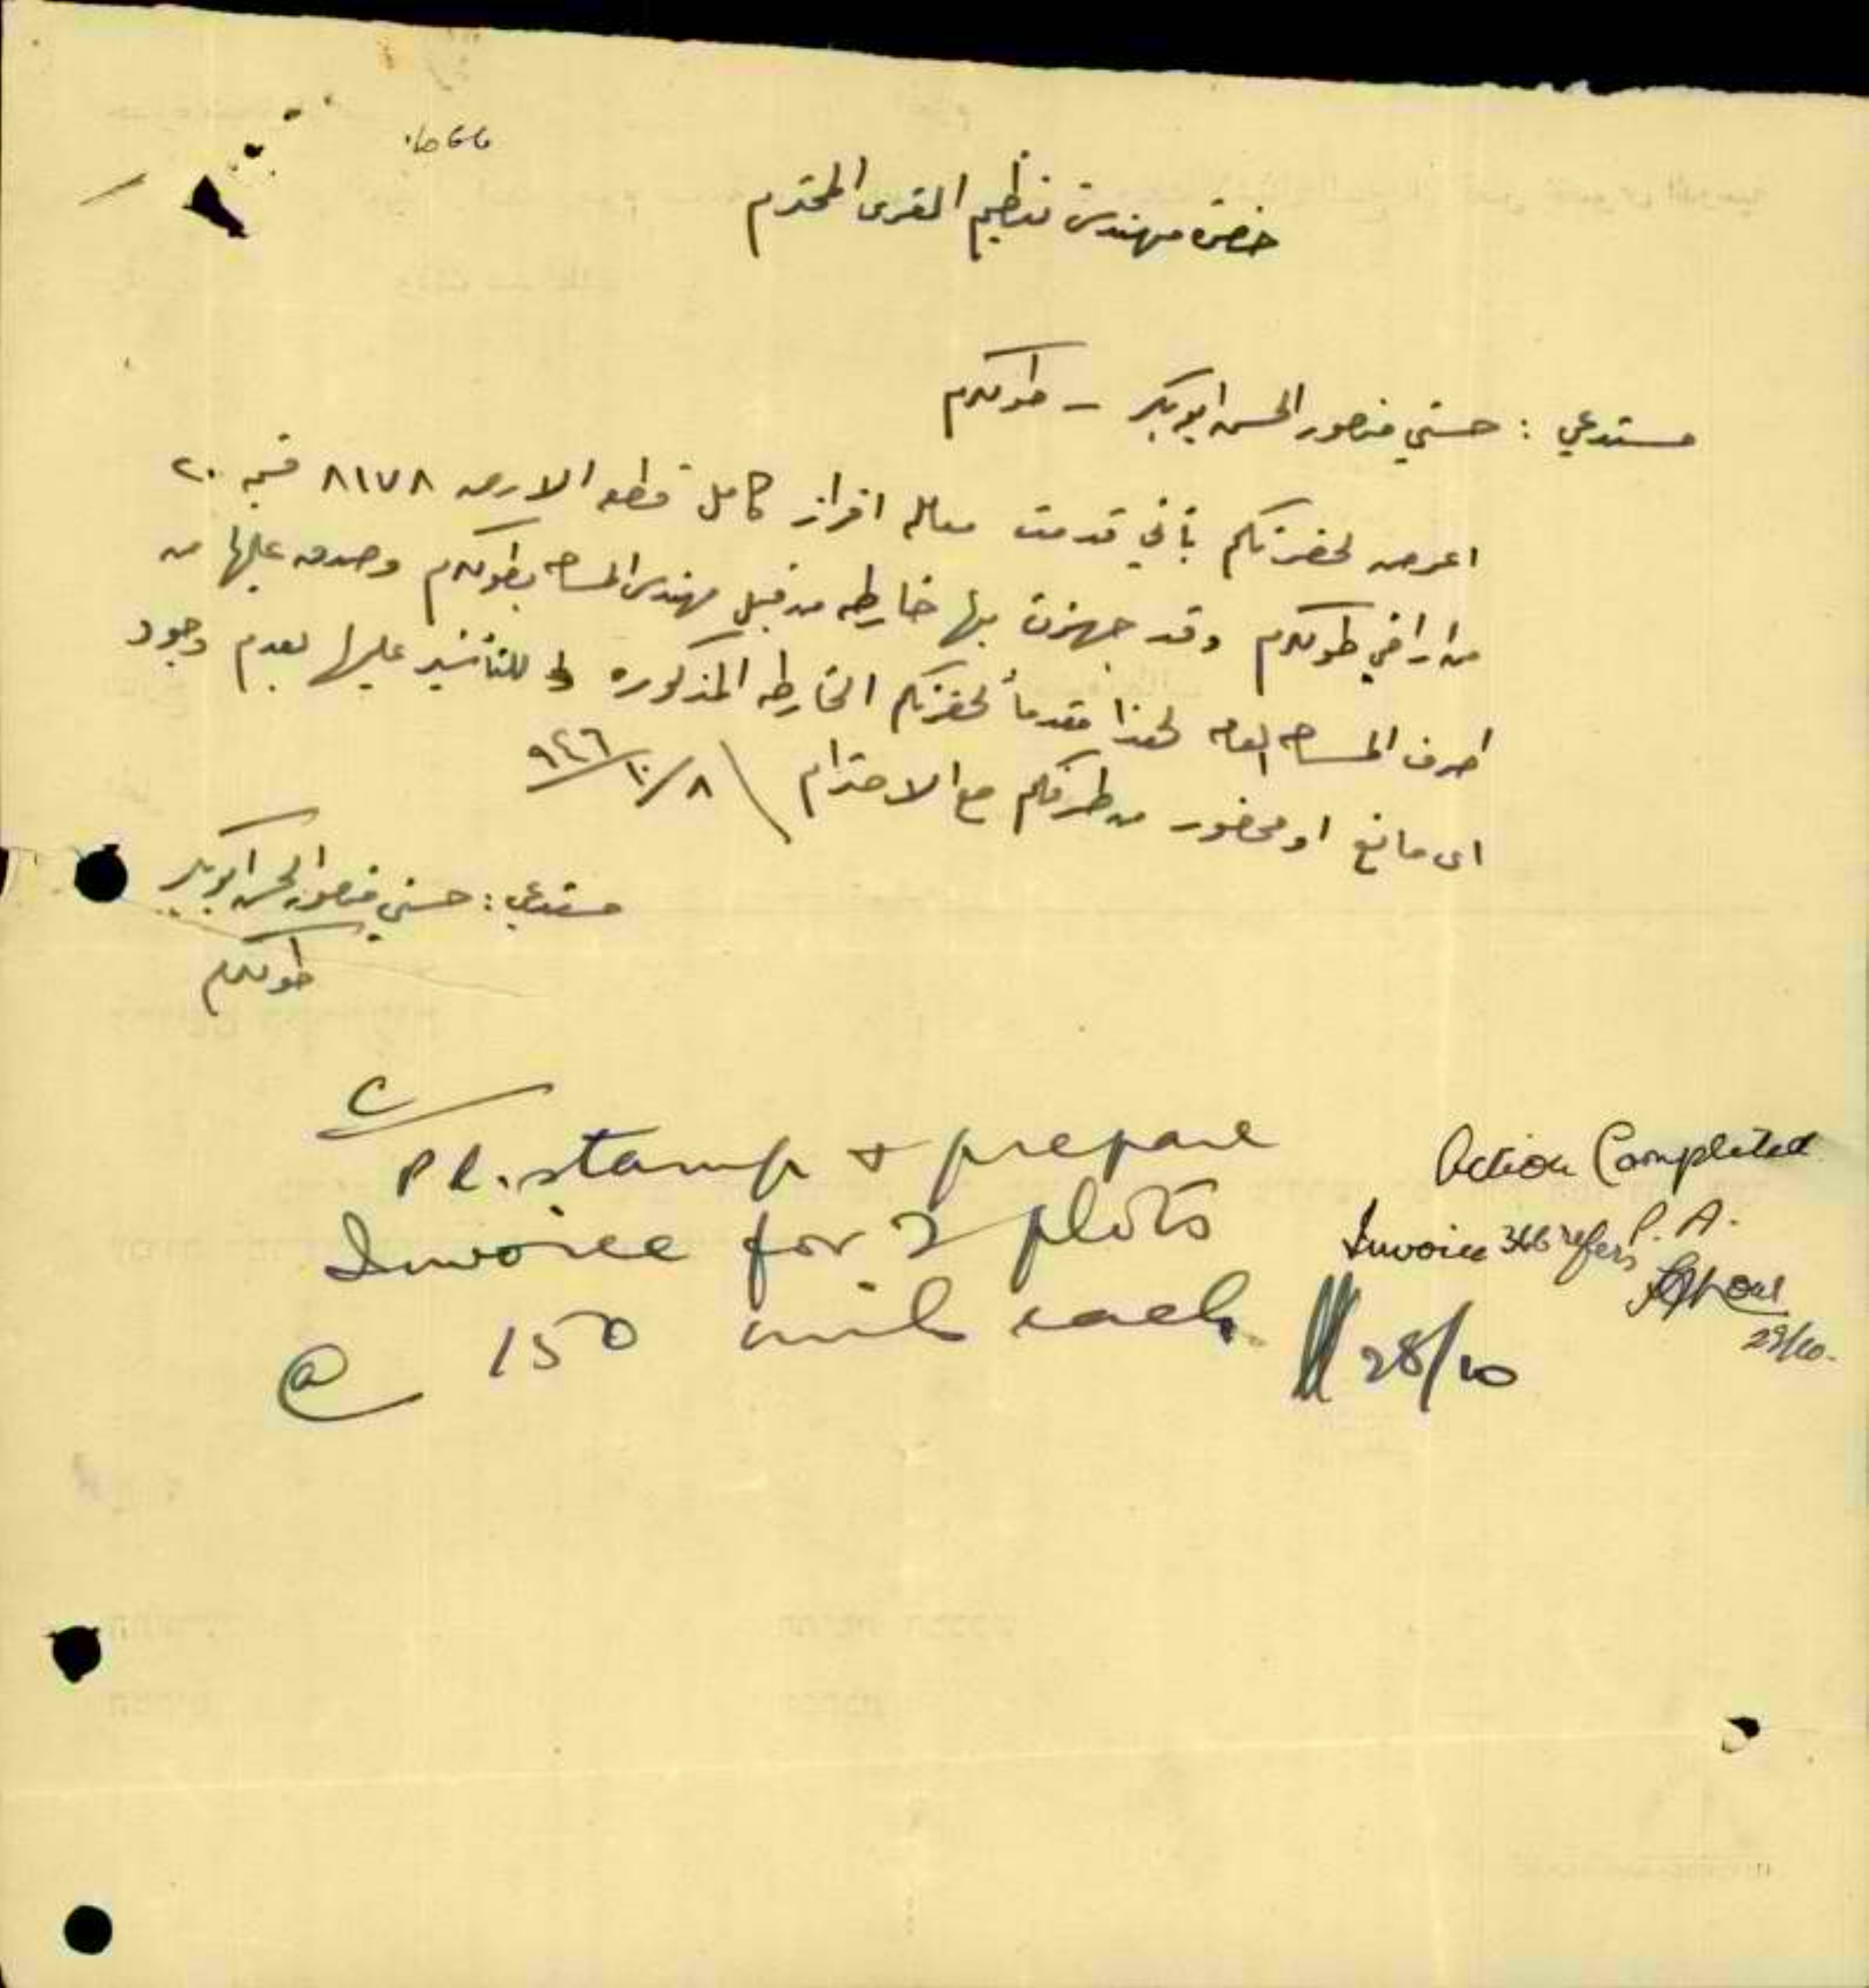 حضرة مهندس تنظيم القرى المحترم
مستدعي : حسني منصور الحسن ابو بكر – طولكرم
اعرض لحضرتكم بأني قدمت معاملة افراز كامل قطعه الارض ٨١٧٨ قسيمه ٢٠
من اراضي طولكرم وقد جهزت بها خارطه من قبل مهندس المساحه بطولكرم وصدق عليها من
المساحه العامه لهذا مقدماً لحضرتكم الخارطه المذكوره للتأشير عليها بعدم وجود
اي مانع او محضور من طرفكم مع الاحترام \ ٨/١٠/٩٤٦
مستدعي : حسني منصور الحسن ابو بكر
طولكرم
C
Pl. stamp & prepare
Invoice for 2 plots
@ 150 mils each
28/10
Action Completed
Invoice 366 refers P. A.
29/10.